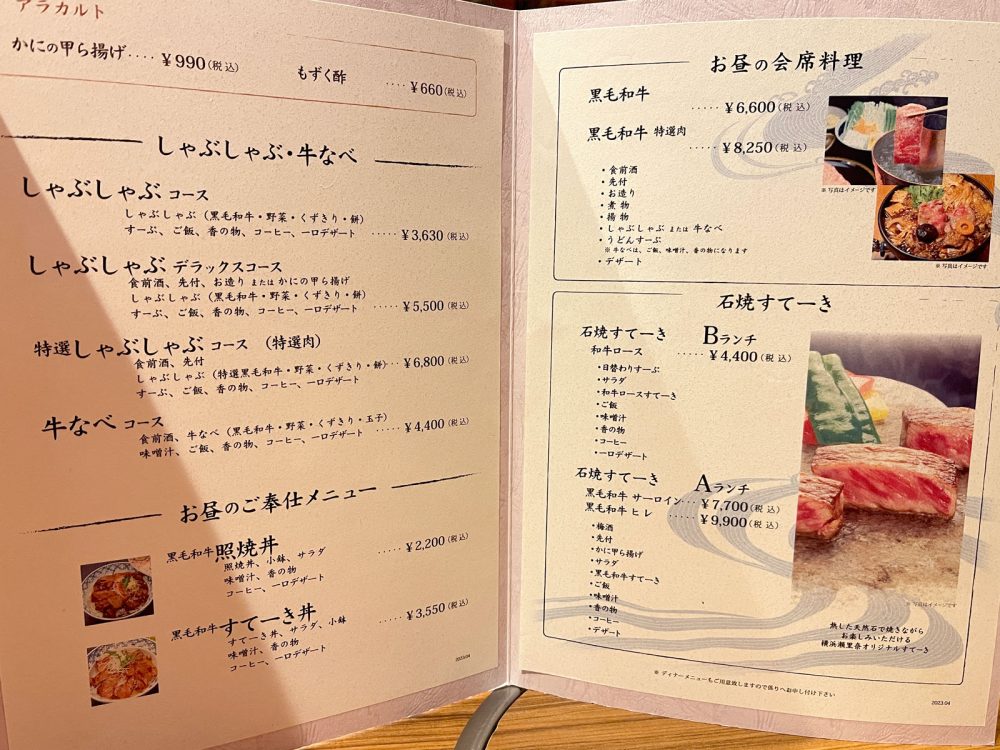 アラカルト
かにの甲ら揚げ‥‥¥990(税込)
もずく酢 ‥‥¥660(税込)
しゃぶしゃぶ・牛なべ
しゃぶしゃぶ コース
しゃぶしゃぶ(黒毛和牛・野菜・くずきり・餅)
すーぷ、ご飯、香の物、コーヒー、一口デザート ‥‥¥3,630(税込)
しゃぶしゃぶ デラックスコース
食前酒、先付、お造り または かにの甲ら揚げ
しゃぶしゃぶ(黒毛和牛・野菜・くずきり・餅)
すーぷ、ご飯、香の物、コーヒー、一口デザート ‥‥¥5,500(税込)
特選しゃぶしゃぶ コース (特選肉)
食前酒、先付
しゃぶしゃぶ(特選黒毛和牛・野菜・くずきり・餅)‥‥¥6,800(税込)
すーぷ、ご飯、香の物、コーヒー、一口デザート
牛なべ コース
食前酒、牛なべ(黒毛和牛・野菜・くずきり・玉子)
味噌汁、ご飯、香の物、コーヒー、一口デザート ‥‥¥4,400(税込)
お昼のご奉仕メニュー
黒毛和牛照焼丼 ‥‥¥2,200(税込)
照焼丼、小鉢、サラダ
味噌汁、香の物
コーヒー、一口デザート
黒毛和牛すてーき丼 ‥‥¥3,550(税込)
すてーき丼、サラダ、小鉢
味噌汁、香の物
コーヒー、一口デザート
2023.04
お昼の会席料理
黒毛和牛
‥‥¥6,600(税込)
黒毛和牛 特選肉
‥‥¥8,250(税込)
・食前酒
・先付
・お造り
・煮物
・揚物
・しゃぶしゃぶ または 牛なべ
・うどんすーぷ
※ 牛なべは、ご飯、味噌汁、香の物になります
・デザート
※ 写真はイメージです
※ 写真はイメージです
石焼すてーき
石焼すてーき Bランチ
和牛ロース ‥‥¥4,400(税込)
・日替わりすーぷ
・サラダ
・和牛ロースすてーき
・ご飯
・味噌汁
・香の物
・コーヒー
・一口デザート
石焼すてーき Aランチ
黒毛和牛 サーロイン‥‥¥7,700(税込)
黒毛和牛 ヒレ ‥‥¥9,900(税込)
・梅酒
・先付
・かに甲ら揚げ
・サラダ
・黒毛和牛すてーき
・ご飯
・味噌汁
・香の物
・コーヒー
・デザート
※ 写真はイメージです
熱した天然石で焼きながら
お楽しみいただける
横浜瀬里奈オリジナルすてーき
※ ディナーメニューもご用意致しますので係りへお申し付け下さい
2023.04